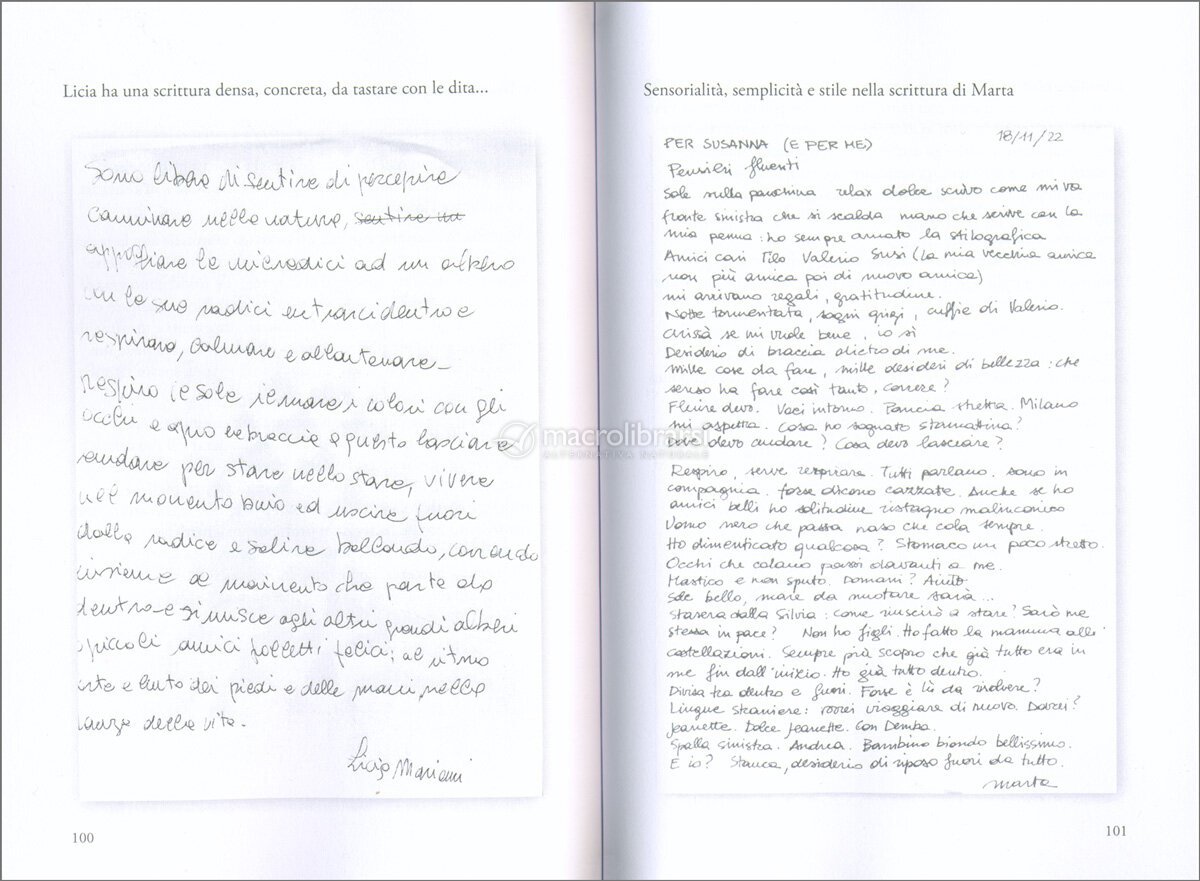 Licia ha una scrittura densa, concreta, da tastare con le dita...
Sono libera di sentire di percepire
Camminare nella natura, sentire una
appoggiare le mie radici ad un albero
con le sue radici entrarci dentro e
respirare, calmare e allontanare
respiro il sole il mare i colori con gli
occhi e apro le braccia a questo lasciare
andare per stare nello stare, vivere
nel momento buio ed uscire fuori
dalla radice e salire ballando,
insieme al movimento che parte da
dentro e si unisce agli altri grandi alberi
piccoli amici folletti felici: al ritmo
e lento dei piedi e delle mani nella
danza della vita.
Licia Mariani
100
Sensorialità, semplicità e stile nella scrittura di Marta
18/11/22
PER SUSANNA (E PER ME)
Pensieri fluenti
Sole sulla panchina relax dolce scrivo come mi va
fronte sinistra che si scalda mano che scrive con la
mia penna: ho sempre amato la stilografica
Amici cari Tilo Valerio Susi (la mia vecchia amica
non più amica poi di nuovo amica)
mi arrivano regali, gratitudine.
Notte tormentata, sogni grigi, cuffie di Valerio.
Chissà se mi vuole bene, io sì
Desiderio di braccia dietro di me.
Mille cose da fare, mille desideri di bellezza: che
senso ha fare così tanto, correre?
Fluire devo. Voci intorno. Pancia stretta. Milano
mi aspetta. Cosa ho sognato stamattina?
Dove devo andare? Cosa devo lasciare?
Respiro, serve respirare. Tutti parlano. Sono in
compagnia. forse dicono cazzate. Anche se ho
amici belli ho solitudine ristagno malinconico
Uomo nero che passa naso che cola sempre.
Ho dimenticato qualcosa? Stomaco un poco stretto.
Occhi che calano passi davanti a me.
Mastico e non sputo. Domani? Aiuto
Sole bello, mare da nuotare sarà...
Stasera dalla Silvia: come riuscirò a stare? Sarò me
stessa in pace? Non ho figli. Ho fatto la mamma alle
costellazioni. Sempre più scopro che già tutto era in
me fin dall'inizio. Ho già tutto dentro.
Divisa tra dentro e fuori. Forse è lì da risolvere?
Lingue straniere: vorrei viaggiare di nuovo. Dakar?
Jeanette. Dolce Jeanette. Con Demba.
Spalla sinistra. Andrea. Bambino biondo bellissimo.
E io? Stanca, desiderio di riposo fuori da tutto.
Marta
101
macrolibrarsi
ALTERNATIVA NATURALE